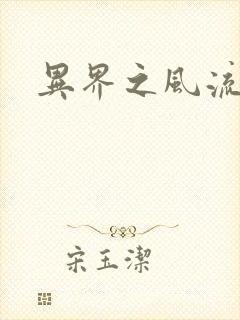 異界之風流
宋玉潔